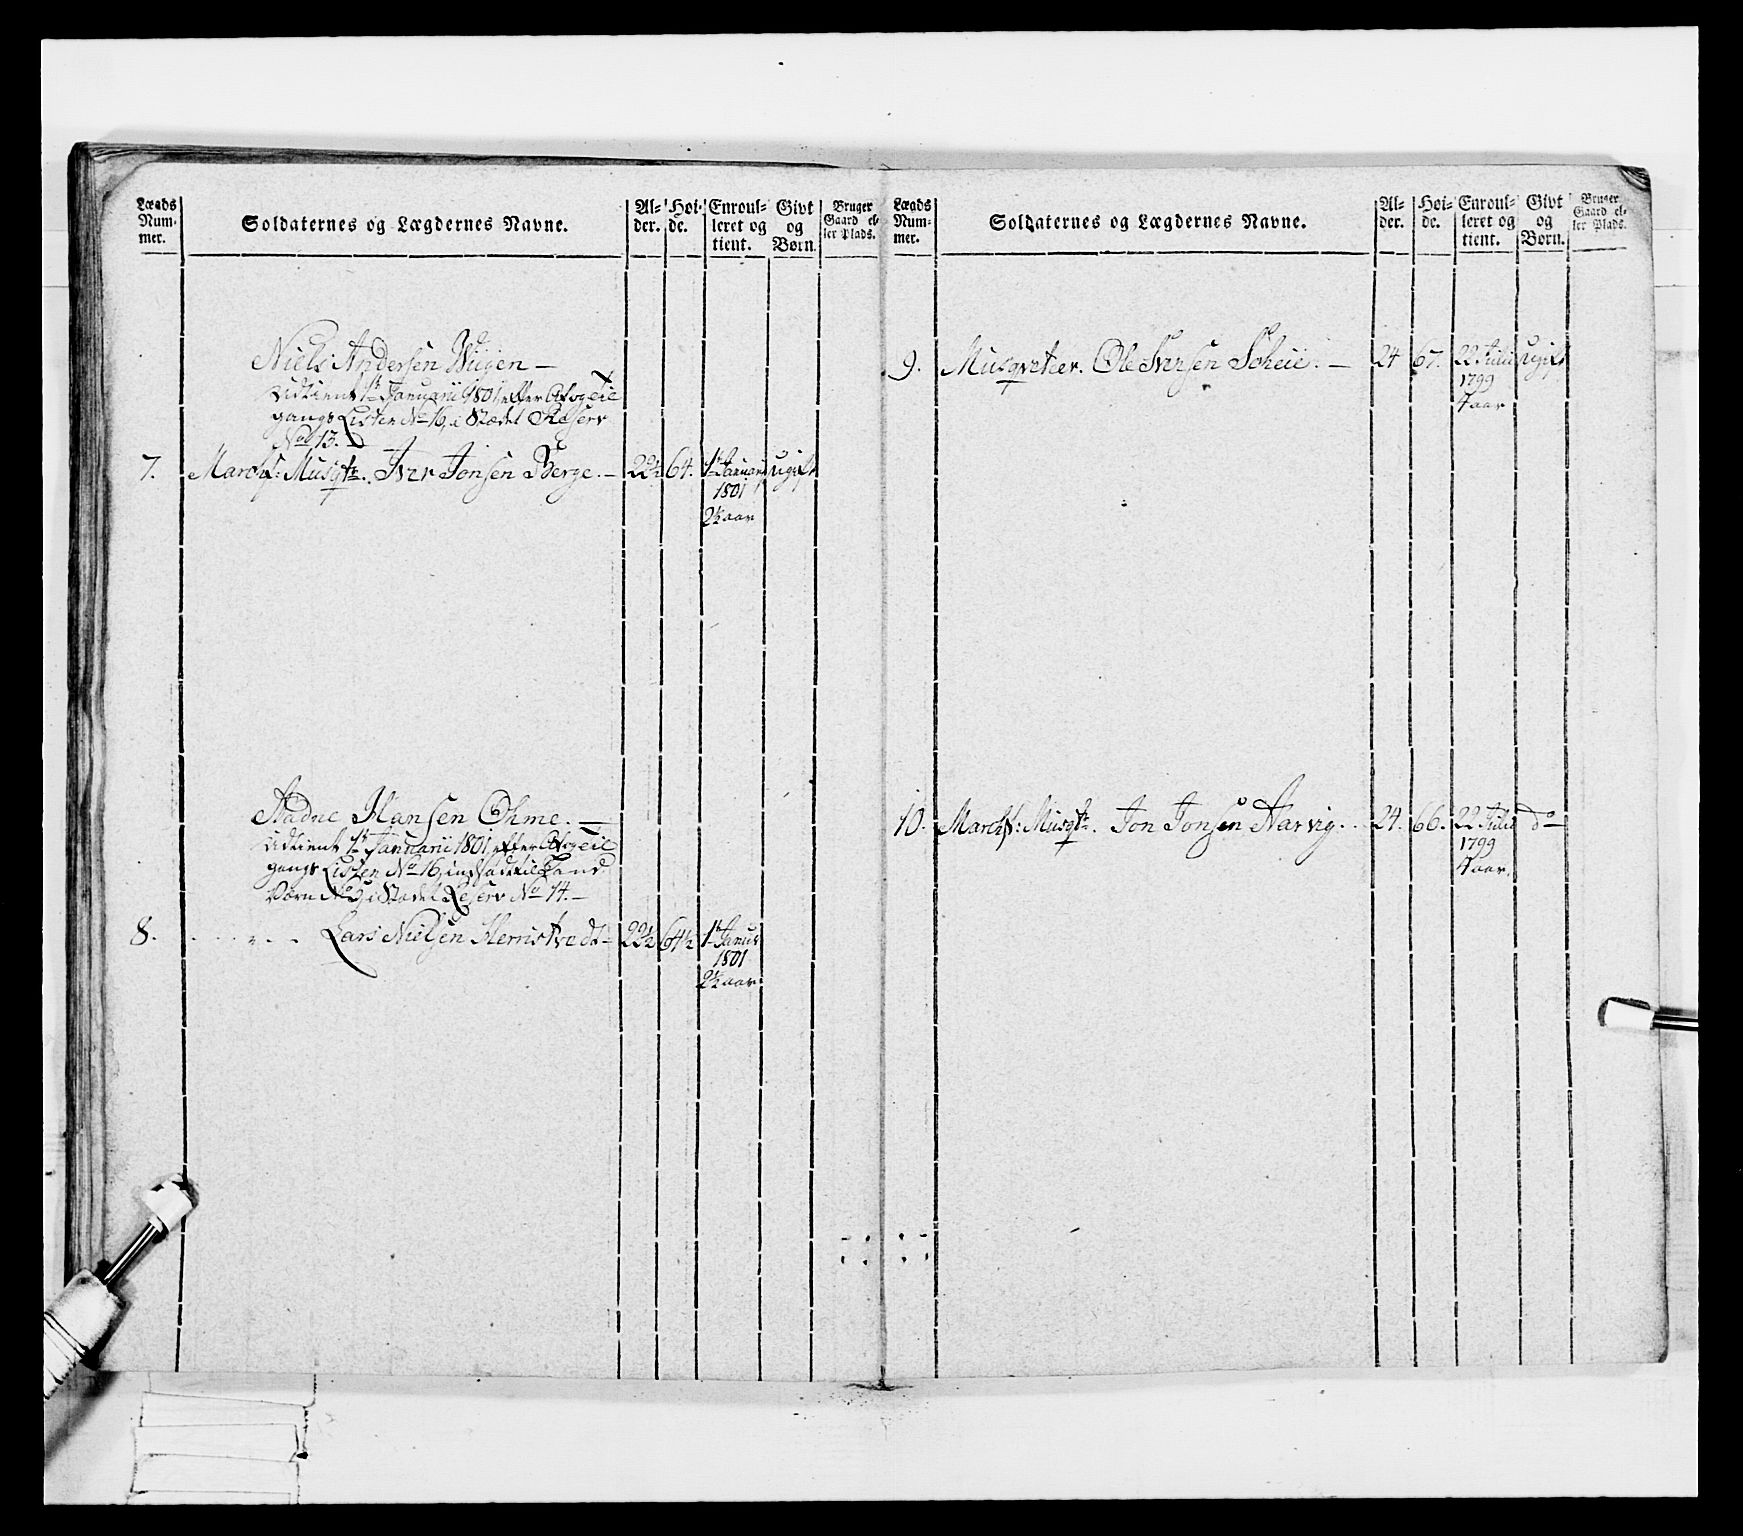 Lægds Num- mer.
Soldaternes og Lægdernes Navne.
Al- der.
Høi- de.
Enroul- leret og tient.
Givt og Børn.
Bruger Gaard el- ler Plads.
Niels Andersen Wiigen —
Udtient 1te Januarii 1801 efter Afg
gangs Listen No 16, i Stædet Reserv
No 13.
7. March: Musqt: Iver Jonsen Berge. — 22½ 64. 1te Januar ugift
1801
2½ aar
Aadne Hansen Ohme. —
Udtient 1te Januarii 1801, efter Afg
gangs Listen No 16, indsadt til Land
Værn No 9, i Stædet Reserv No 14. —
8. . . . „ . . Lars Nielsen Herristvedt — 22½ 64½ 1te Januar
1801
2½ aar
Lægds Num- mer.
Soldaternes og Lægdernes Navne.
Al- der.
Høi- de.
Enroul- leret og tient.
Givt og Børn.
Bruger Gaard el- ler Plads.
9. Musqveteer. Ole Ivarsen Scheie. — 24 67. 22 Julii ugift
1799
4 aar
10. March: Musqt. Jon Jonsen Aarvig. . 24. 66. 22 Julii do —
1799
4 aar.